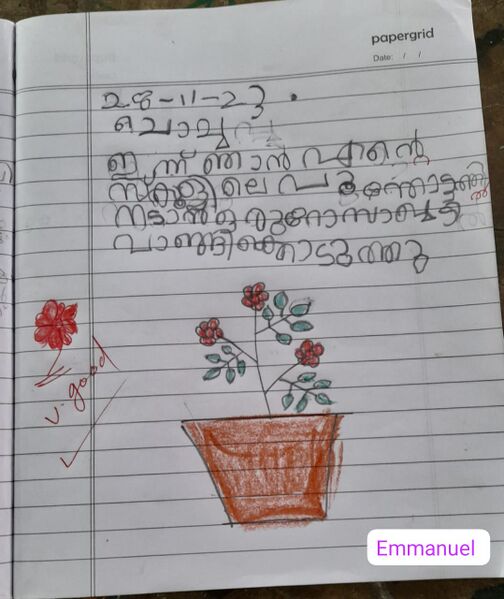 papergrid
Date: / /
28-11-23.
ചൊവ്വ
ഇന്ന് ഞാൻ എന്റെ
സ്കൂളിലെ പൂന്തോട്ടത്തിൽ
നടാൻ ഒരു റോസാ ചെട്ടി
വാങ്ങികൊടുത്തു
v. good
Emmanuel